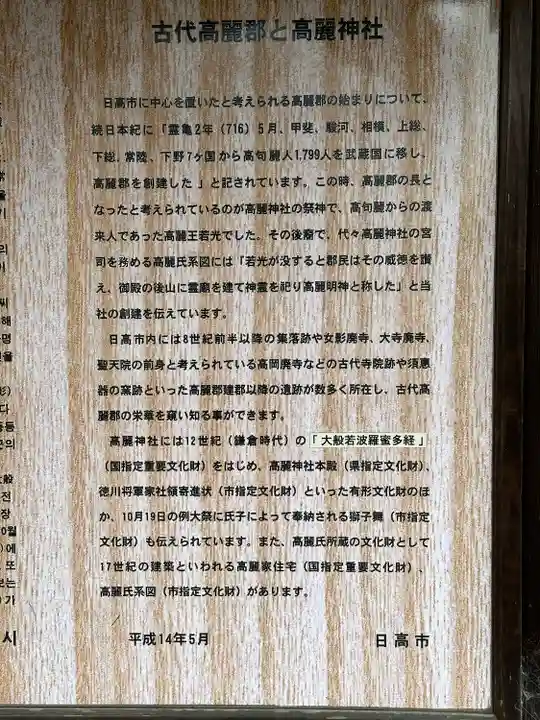 古代高麗郡と高麗神社
日高市に中心を置いたと考えられる高麗郡の始まりについて、
続日本紀に「霊亀2年（716）5月、甲斐、駿河、相模、上総、
下総、常陸、下野7ヶ国から高句麗人1,799人を武蔵国に移し、
高麗郡を創建した」と記されています。この時、高麗郡の長と
なったと考えられているのが高麗神社の祭神で、高句麗からの渡
来人であった高麗王若光でした。その後裔で、代々高麗神社の宮
司を務める高麗氏系図には「若光が没すると郡民はその威徳を讃
え、御殿の後山に霊廟を建て神霊を祀り高麗明神と称した」と当
社の創建を伝えています。
日高市内には8世紀前半以降の集落跡や女影廃寺、大寺廃寺、
聖天院の前身と考えられている高岡廃寺などの古代寺院跡や須恵
器の窯跡といった高麗郡建郡以降の遺跡が数多く所在し、古代高
麗郡の栄華を窺い知る事ができます。
高麗神社には12世紀（鎌倉時代）の「大般若波羅蜜多経」
（国指定重要文化財）をはじめ、高麗神社本殿（県指定文化財）、
徳川将軍家社領寄進状（市指定文化財）といった有形文化財のほ
か、10月19日の例大祭に氏子によって奉納される獅子舞（市指定
文化財）も伝えられています。また、高麗氏所蔵の文化財として
17世紀の建築といわれる高麗家住宅（国指定重要文化財）、
高麗氏系図（市指定文化財）があります。
平成14年5月 日高市
시